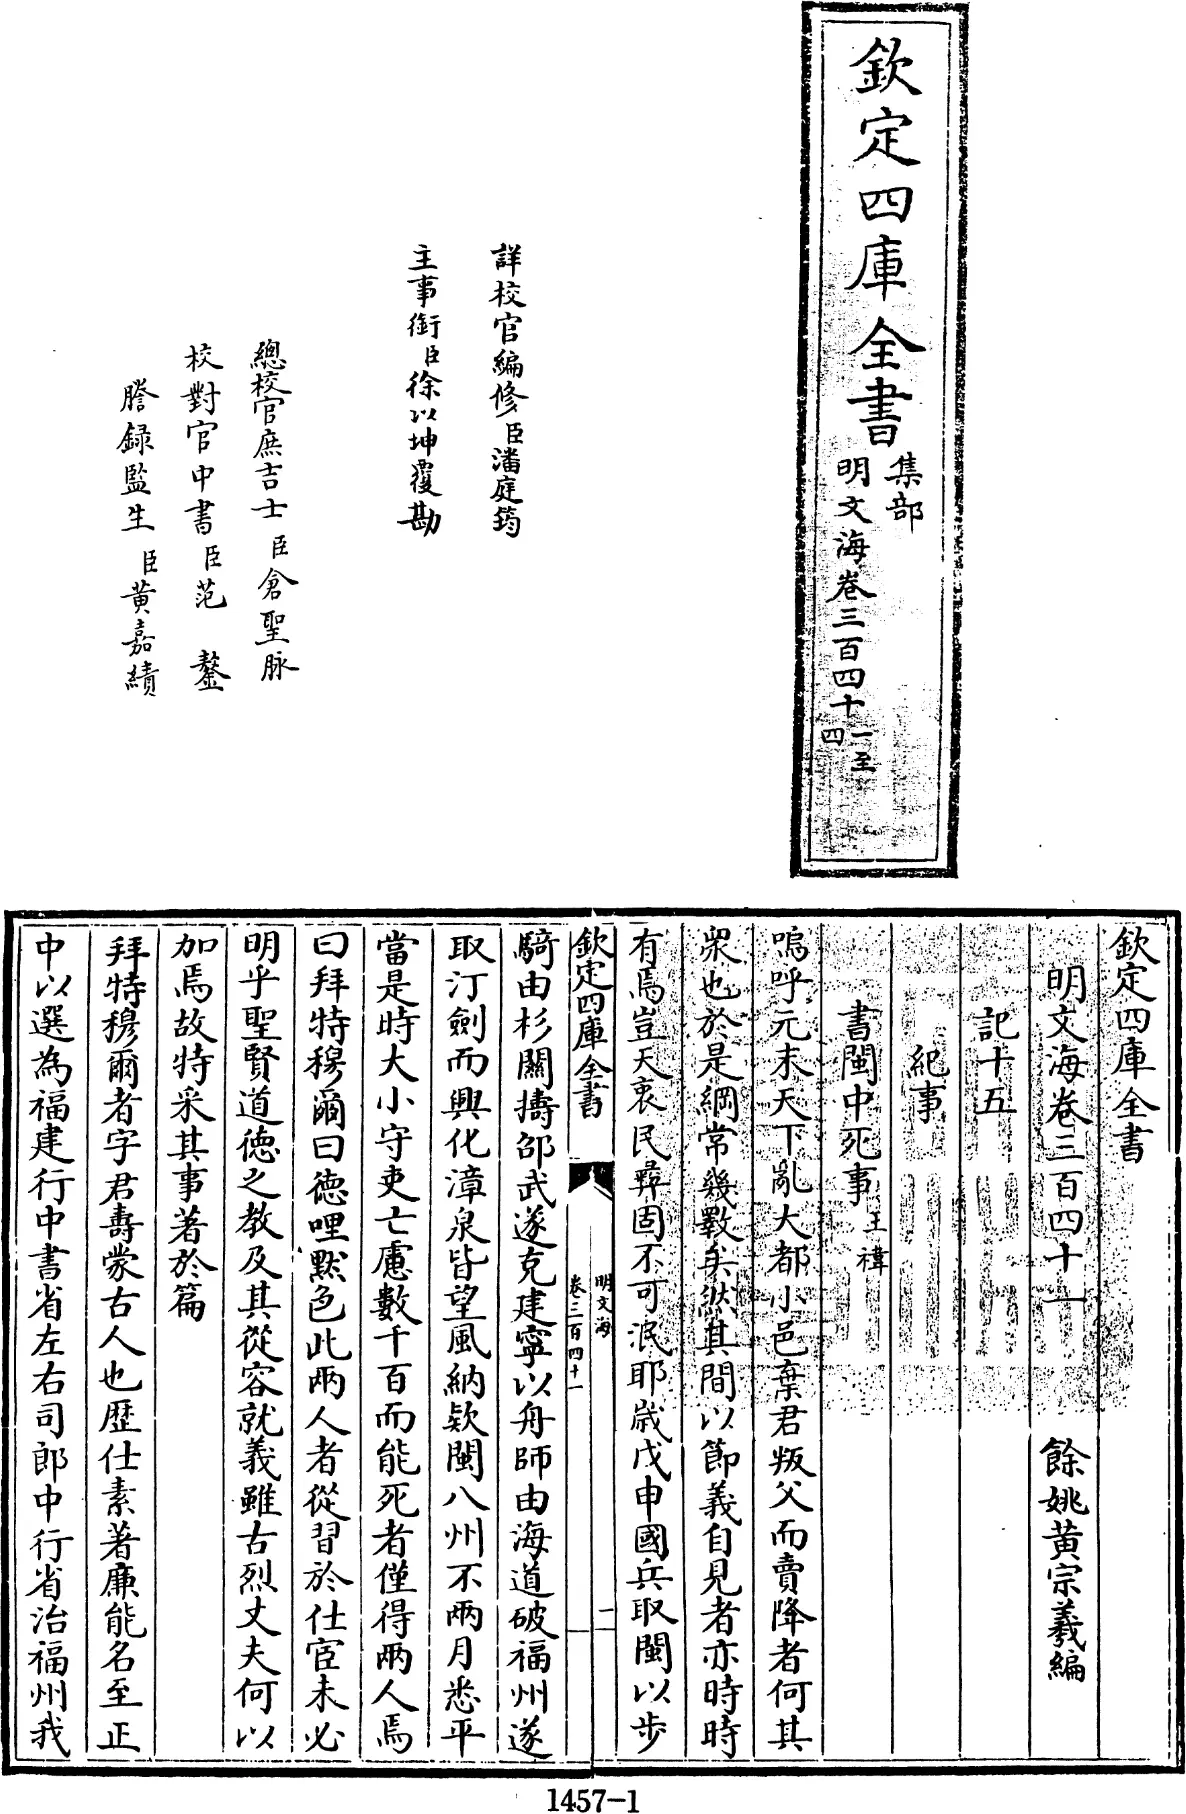 欽定四庫全書
集部
明文海卷三百四十一至
四
詳校官編修臣潘庭筠
主事銜臣徐以坤覆勘
總校官庶吉士臣倉聖脉
校對官中書臣范鏊
謄録監生臣黄嘉績
欽定四庫全書
明文海卷三百四十一
餘姚黄宗羲編
記十五
紀事
書閩中死事王禕
嗚呼元末天下亂大都小邑棄君叛父而賣降者何其
衆也於是綱常幾斁矣然其間以節義自見者亦時時
有焉豈天衷民彛固不可泯耶歲戊申國兵取閩以步
欽定四庫全書
明文海
卷三百四十一
一
騎由杉關擣邵武遂克建寧以舟師由海道破福州遂
取汀劍而興化漳泉皆望風納欵閩八州不兩月悉平
當是時大小守吏亡慮數千百而能死者僅得兩人焉
曰拜特穆爾曰德哩黙色此兩人者從習於仕宦未必
明乎聖賢道徳之教及其從容就義雖古烈丈夫何以
加焉故特采其事著於篇
拜特穆爾者字君壽蒙古人也歴仕素著廉能名至正
中以選為福建行中書省左右司郎中行省治福州我
1457-1